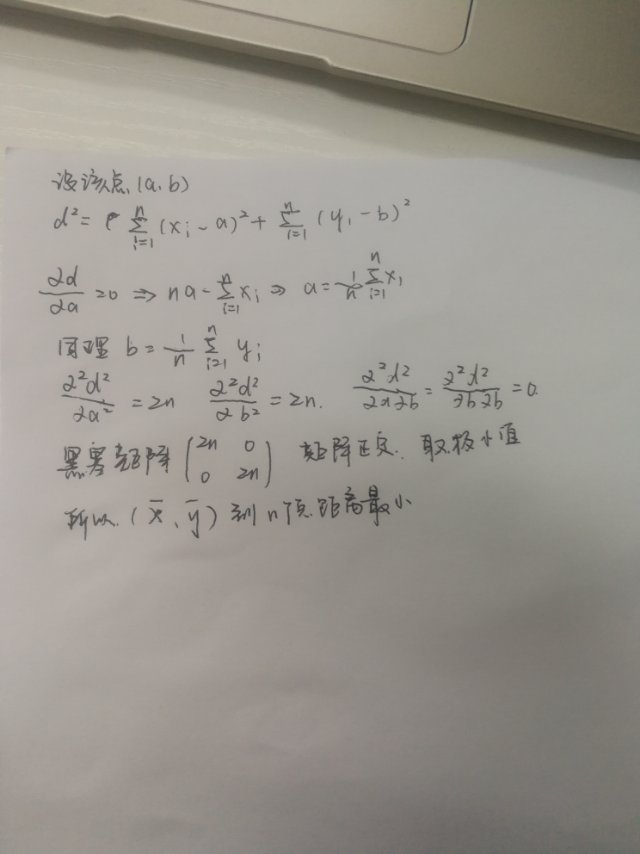 设该点(a,b)
d²= \sum_{i=1}^{n}(x_i-a)²+\sum_{i=1}^{n}(y_i-b)²
\frac{∂d}{∂a}=0 ⇒ na-\sum_{i=1}^{n}x_i ⇒ a=\frac{1}{n}\sum_{i=1}^{n}x_i
同理 b=\frac{1}{n}\sum_{i=1}^{n}y_i
\frac{∂²d²}{∂a²}=2n \frac{∂²d²}{∂b²}=2n. \frac{∂²d²}{∂a∂b}=\frac{∂²d²}{∂b∂b}=0.
黑塞矩阵 \begin{pmatrix}2n & 0\\0 & 2n\end{pmatrix} 矩阵正定. 取极小值
所以 (\bar{x}, \bar{y}) 到n个点距离最小